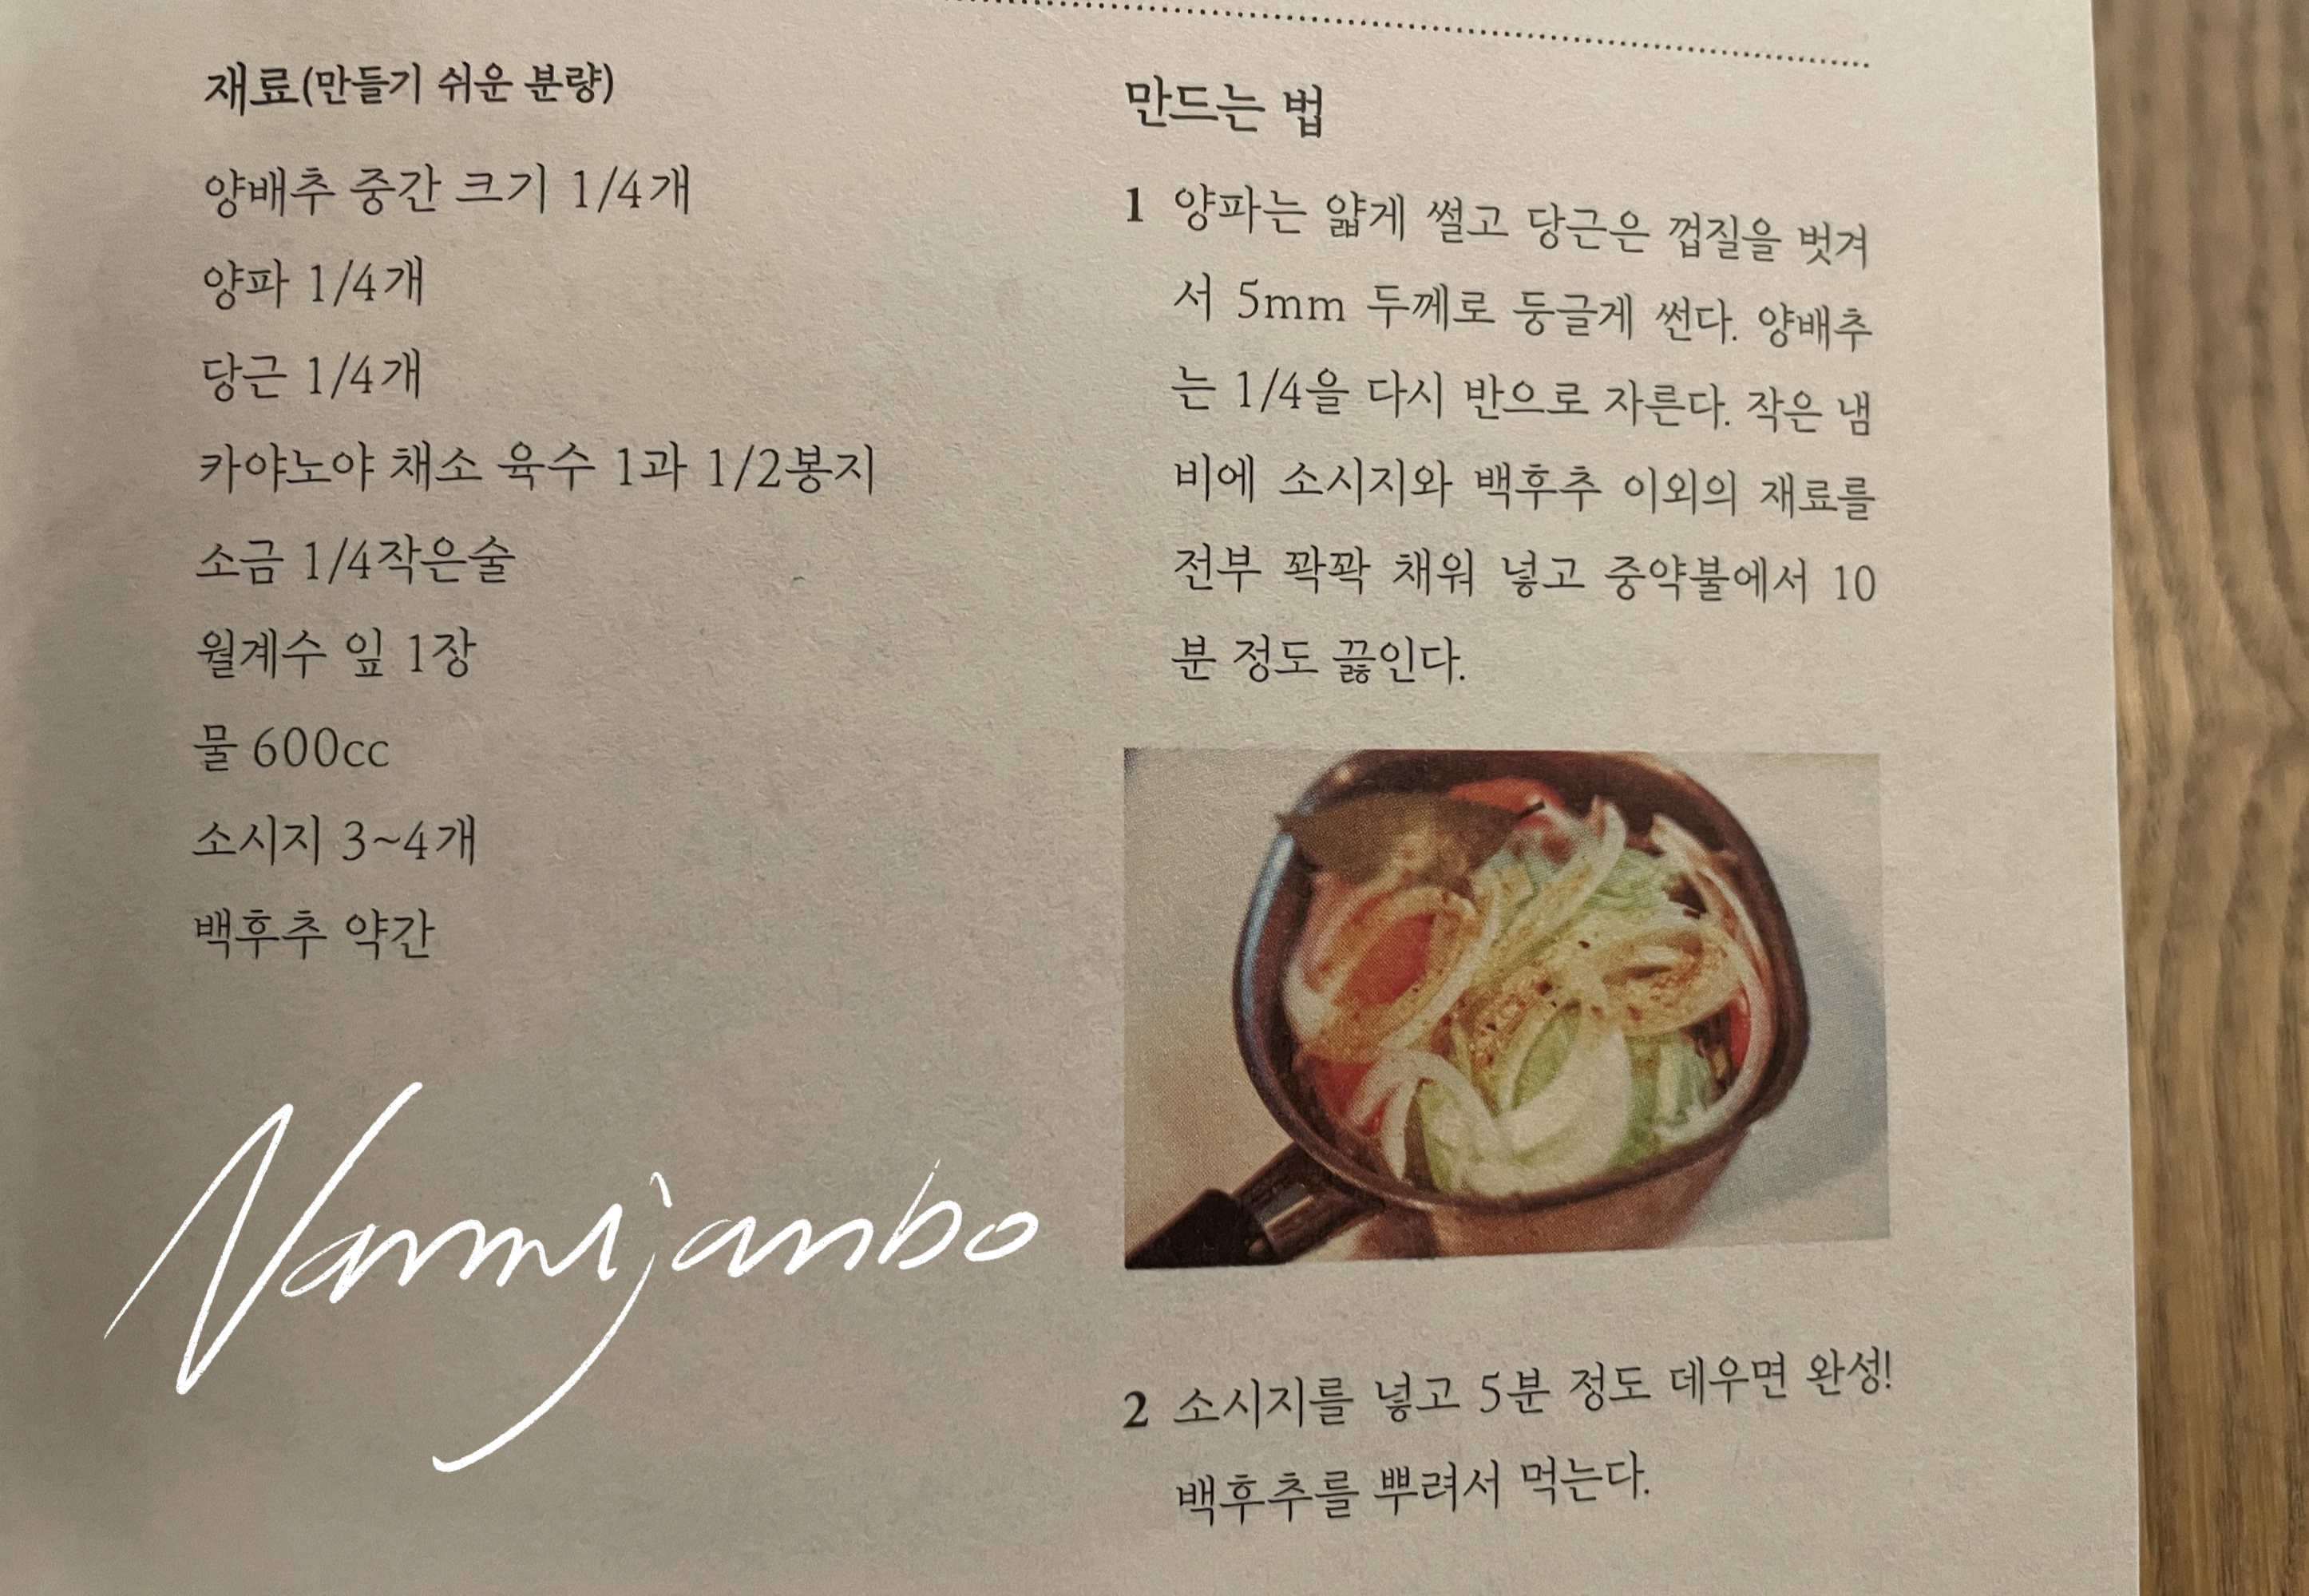 재료(만들기 쉬운 분량)
양배추 중간 크기 1/4개
양파 1/4개
당근 1/4개
카야노야 채소 육수 1과 1/2봉지
소금 1/4작은술
월계수 잎 1장
물 600cc
소시지 3~4개
백후추 약간
Nammijanbo
만드는 법
1 양파는 얇게 썰고 당근은 껍질을 벗겨
서 5mm 두께로 둥글게 썬다. 양배추
는 1/4을 다시 반으로 자른다. 작은 냄
비에 소시지와 백후추 이외의 재료를
전부 꽉꽉 채워 넣고 중약불에서 10
분 정도 끓인다.
2 소시지를 넣고 5분 정도 데우면 완성!
백후추를 뿌려서 먹는다.